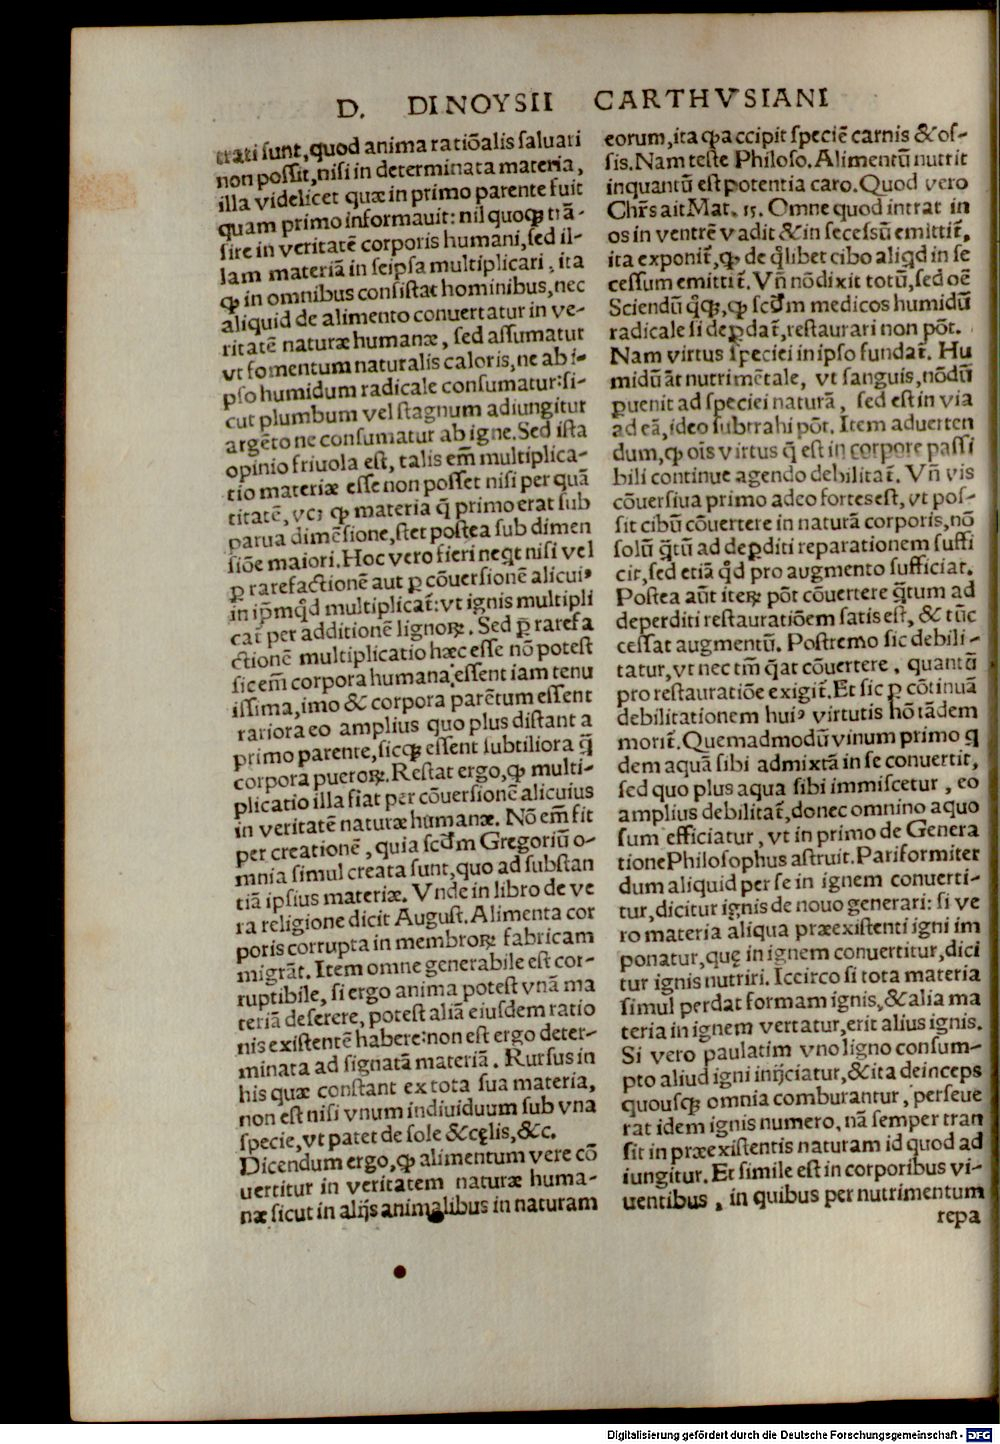 D. DINOYSII CARTHVSIANI
trati sunt, quod anima ratiōalis saluari
non possit, nisi in determinata materia,
illa videlicet quæ in primo parente fuit
quam primo informauit: nil quoqꝫ trā-
sire in veritatē corporis humani, sed il-
lam materiā in seipsa multiplicari, ita
ꝙ in omnibus consistat hominibus, nec
aliquid de alimento conuertatur in ve-
ritatē naturæ humanæ, sed assumatur
vt fomentum naturalis caloris, ne ab i-
pso humidum radicale consumatur: si-
cut plumbum vel stagnum adiungitur
argēto ne consumatur ab igne. Sed ista
opinio friuola est, talis em̄ multiplica-
tio materiæ esse non posset nisi per quā
titatē, vcꝫ ꝙ materia q̄ primo erat sub
parua dimēsione, stet postea sub dimen
siōe maiori. Hoc vero fieri neq̇t nisi vel
ꝑ rarefactionē aut ꝑ cōuersionē alicuiꝰ
in ip̄mq̇d multiplicat̄: vt ignis multipli
cat̄ per additionē lignoꝝ. Sed ꝑ rarefa
ctionē multiplicatio hæc esse nō potest
sic em̄ corpora humana essent iam tenu
issima, imo & corpora parētum essent
rariora eo amplius quo plus distant a
primo parente, sicqꝫ essent subtiliora q̄
corpora pueroꝝ. Restat ergo, ꝙ multi-
plicatio illa fiat per cōuersionē alicuius
in veritatē naturæ humanæ. Nō em̄ fit
per creationē, quia scd̄m Gregoriū o-
mnia simul creata sunt, quo ad substan
tiā ipsius materiæ. Vnde in libro de ve
ra religione dicit August. Alimenta cor
poris corrupta in membroꝝ fabricam
migrāt. Item omne generabile est cor-
ruptibile, si ergo anima potest vnā ma
teriā deserere, potest aliā eiusdem ratio
nis existentē habere: non est ergo deter-
minata ad signatā materiā. Rursus in
his quæ constant ex tota sua materia,
non est nisi vnum indiuiduum sub vna
specie, vt patet de sole & cęlis, &c.
Dicendum ergo, ꝙ alimentum vere cō
uertitur in veritatem naturæ huma-
næ sicut in alijs animalibus in naturam
eorum, ita ꝙ accipit speciē carnis & os-
sis. Nam teste Philoso. Alimentū nutrit
inquantū est potentia caro. Quod vero
Chr̄s ait Mat. 15. Omne quod intrat in
os in ventrē vadit & in secessū emittit̄,
ita exponit̄, ꝙ de q̊libet cibo aliq̇d in se
cessum emittit̄. Vn̄ nō dixit totū, sed oē
Sciendū q̊qꝫ, ꝙ scd̄m medicos humidū
radicale si deꝑdat̄, restaurari non pōt.
Nam virtus speciei in ipso fundat̄. Hu
midū āt nutrimētale, vt sanguis, nōdū
ꝑuenit ad speciei naturā, sed est in via
ad eā, ideo subtrahi pōt. Item aduerten
dum, ꝙ oīs virtus q̄ est in corpore passi
bili continue agendo debilitat̄. Vn̄ vis
cōuersiua primo adeo fortes est, vt pos-
sit cibū cōuertere in naturā corporis, nō
solū q̄tū ad deꝑditi reparationem suffi
cit, sed etiā q̊d pro augmento sufficiat.
Postea aūt iteꝝ pōt cōuertere q̄tum ad
deperditi restauratiōem satis est, & tūc
cessat augmentū. Postremo sic debili-
tatur, vt nec tm̄ q̄at cōuertere, quantū
pro restauratiōe exigit̄. Et sic ꝑ cōtinuā
debilitationem huiꝰ virtutis hō tādem
morit̄. Quemadmodū vinum primo q
dem aquā sibi admixtā in se conuertit,
sed quo plus aqua sibi immiscetur, eo
amplius debilitat̄, donec omnino aquo
sum efficiatur, vt in primo de Genera
tione Philosophus astruit. Pariformiter
dum aliquid per se in ignem conuerti-
tur, dicitur ignis de nouo generari: si ve
ro materia aliqua præexistenti igni im
ponatur, quę in ignem conuertitur, dici
tur ignis nutriri. Iccirco si tota materia
simul perdat formam ignis, & alia ma
teria in ignem vertatur, erit alius ignis.
Si vero paulatim vno ligno consum-
pto aliud igni inijciatur, & ita deinceps
quousqꝫ omnia comburantur, perseue
rat idem ignis numero, nā semper tran
sit in præexistentis naturam id quod ad
iungitur. Et simile est in corporibus vi-
uentibus, in quibus per nutrimentum
repa
Digitalisierung gefördert durch die Deutsche Forschungsgemeinschaft - DFG